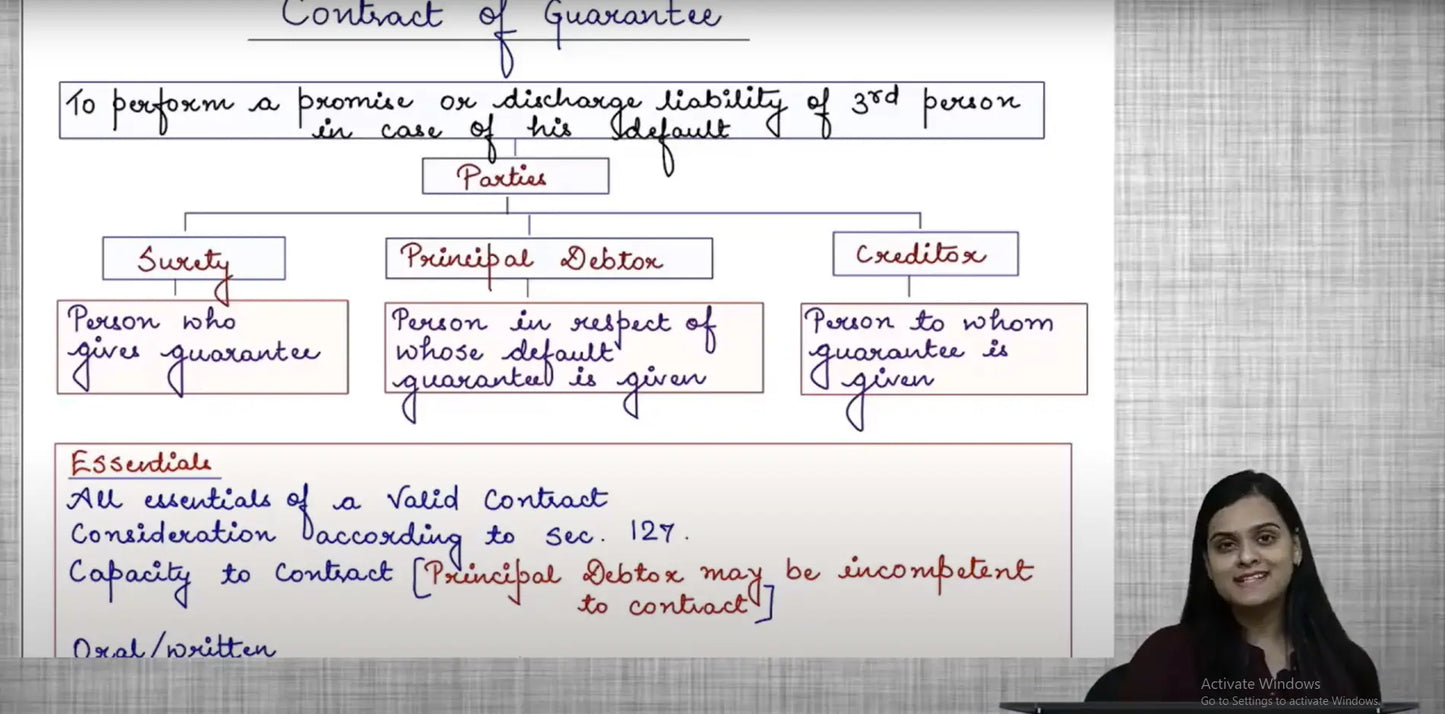 Contract of Guarantee
To perform a promise or discharge liability of 3rd person
in case of his default
Parties
Surety
Principal Debtor
Creditor
Person who
gives guarantee
Person in respect of
whose default
guarantee is given
Person to whom
guarantee is
given
Essentials
All essentials of a valid Contract
Consideration according to sec. 127.
Capacity to contract [Principal Debtor may be incompetent
to contract]
Oral/written
Activate Windows
Go to Settings to activate Windows.